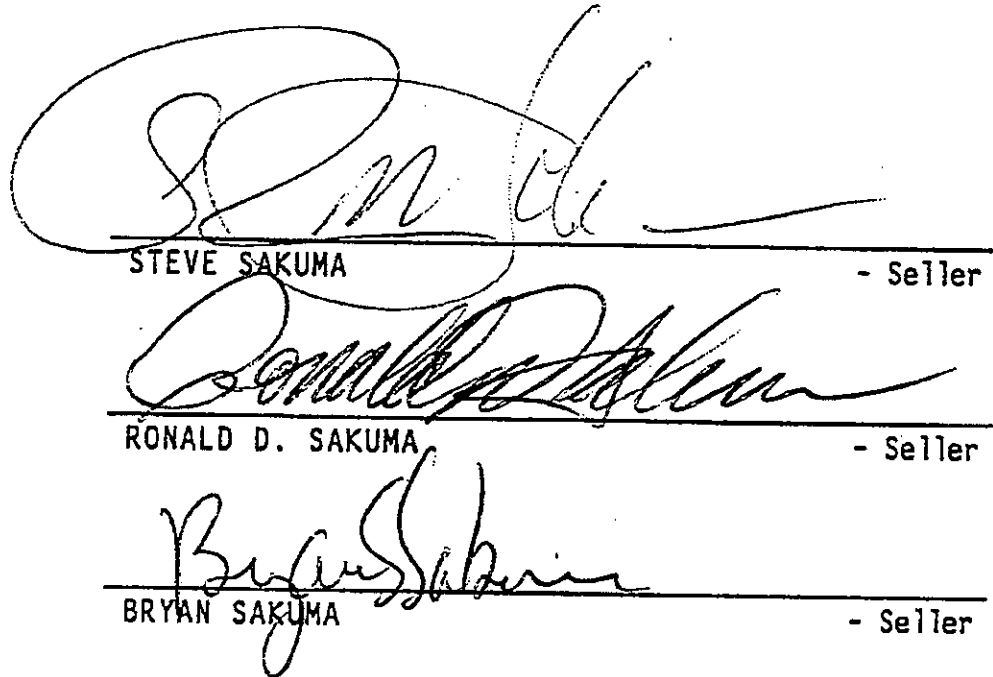 STEVE SAKUMA - Seller
Ronald D Sakuma
RONALD D. SAKUMA - Seller
Bryan Sakuma
BRYAN SAKUMA - Seller